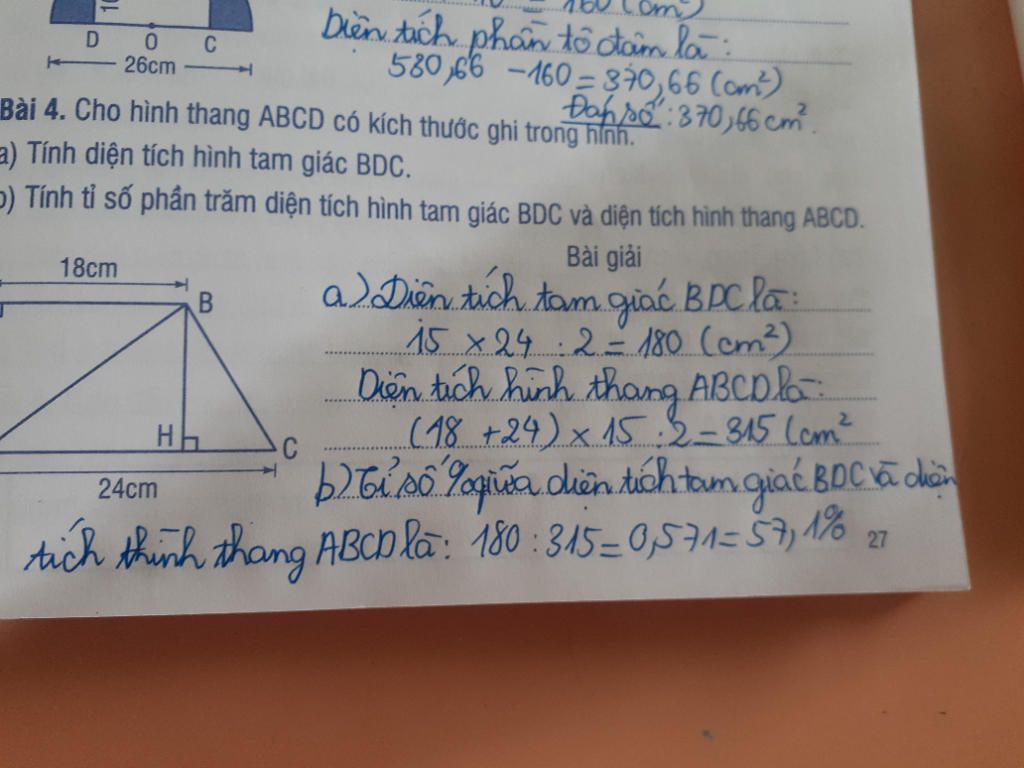 = 160 (cm²)
Diện tích phần tô đậm là:
D O C
26cm
530,66 - 160 = 370,66 (cm²)
Đáp số: 370,66 cm².
Bài 4. Cho hình thang ABCD có kích thước ghi trong hình.
a) Tính diện tích hình tam giác BDC.
b) Tính tỉ số phần trăm diện tích hình tam giác BDC và diện tích hình thang ABCD.
Bài giải
18cm
B
H
C
24cm
a) Diện tích tam giác BDC là:
15 × 24 : 2 = 180 (cm²)
Diện tích hình thang ABCD là:
(18 + 24) × 15 : 2 = 315 (cm²
b) Tỉ số % giữa diện tích tam giác BDC và diện
tích hình thang ABCD là: 180 : 315 = 0,571 = 57,1%
27